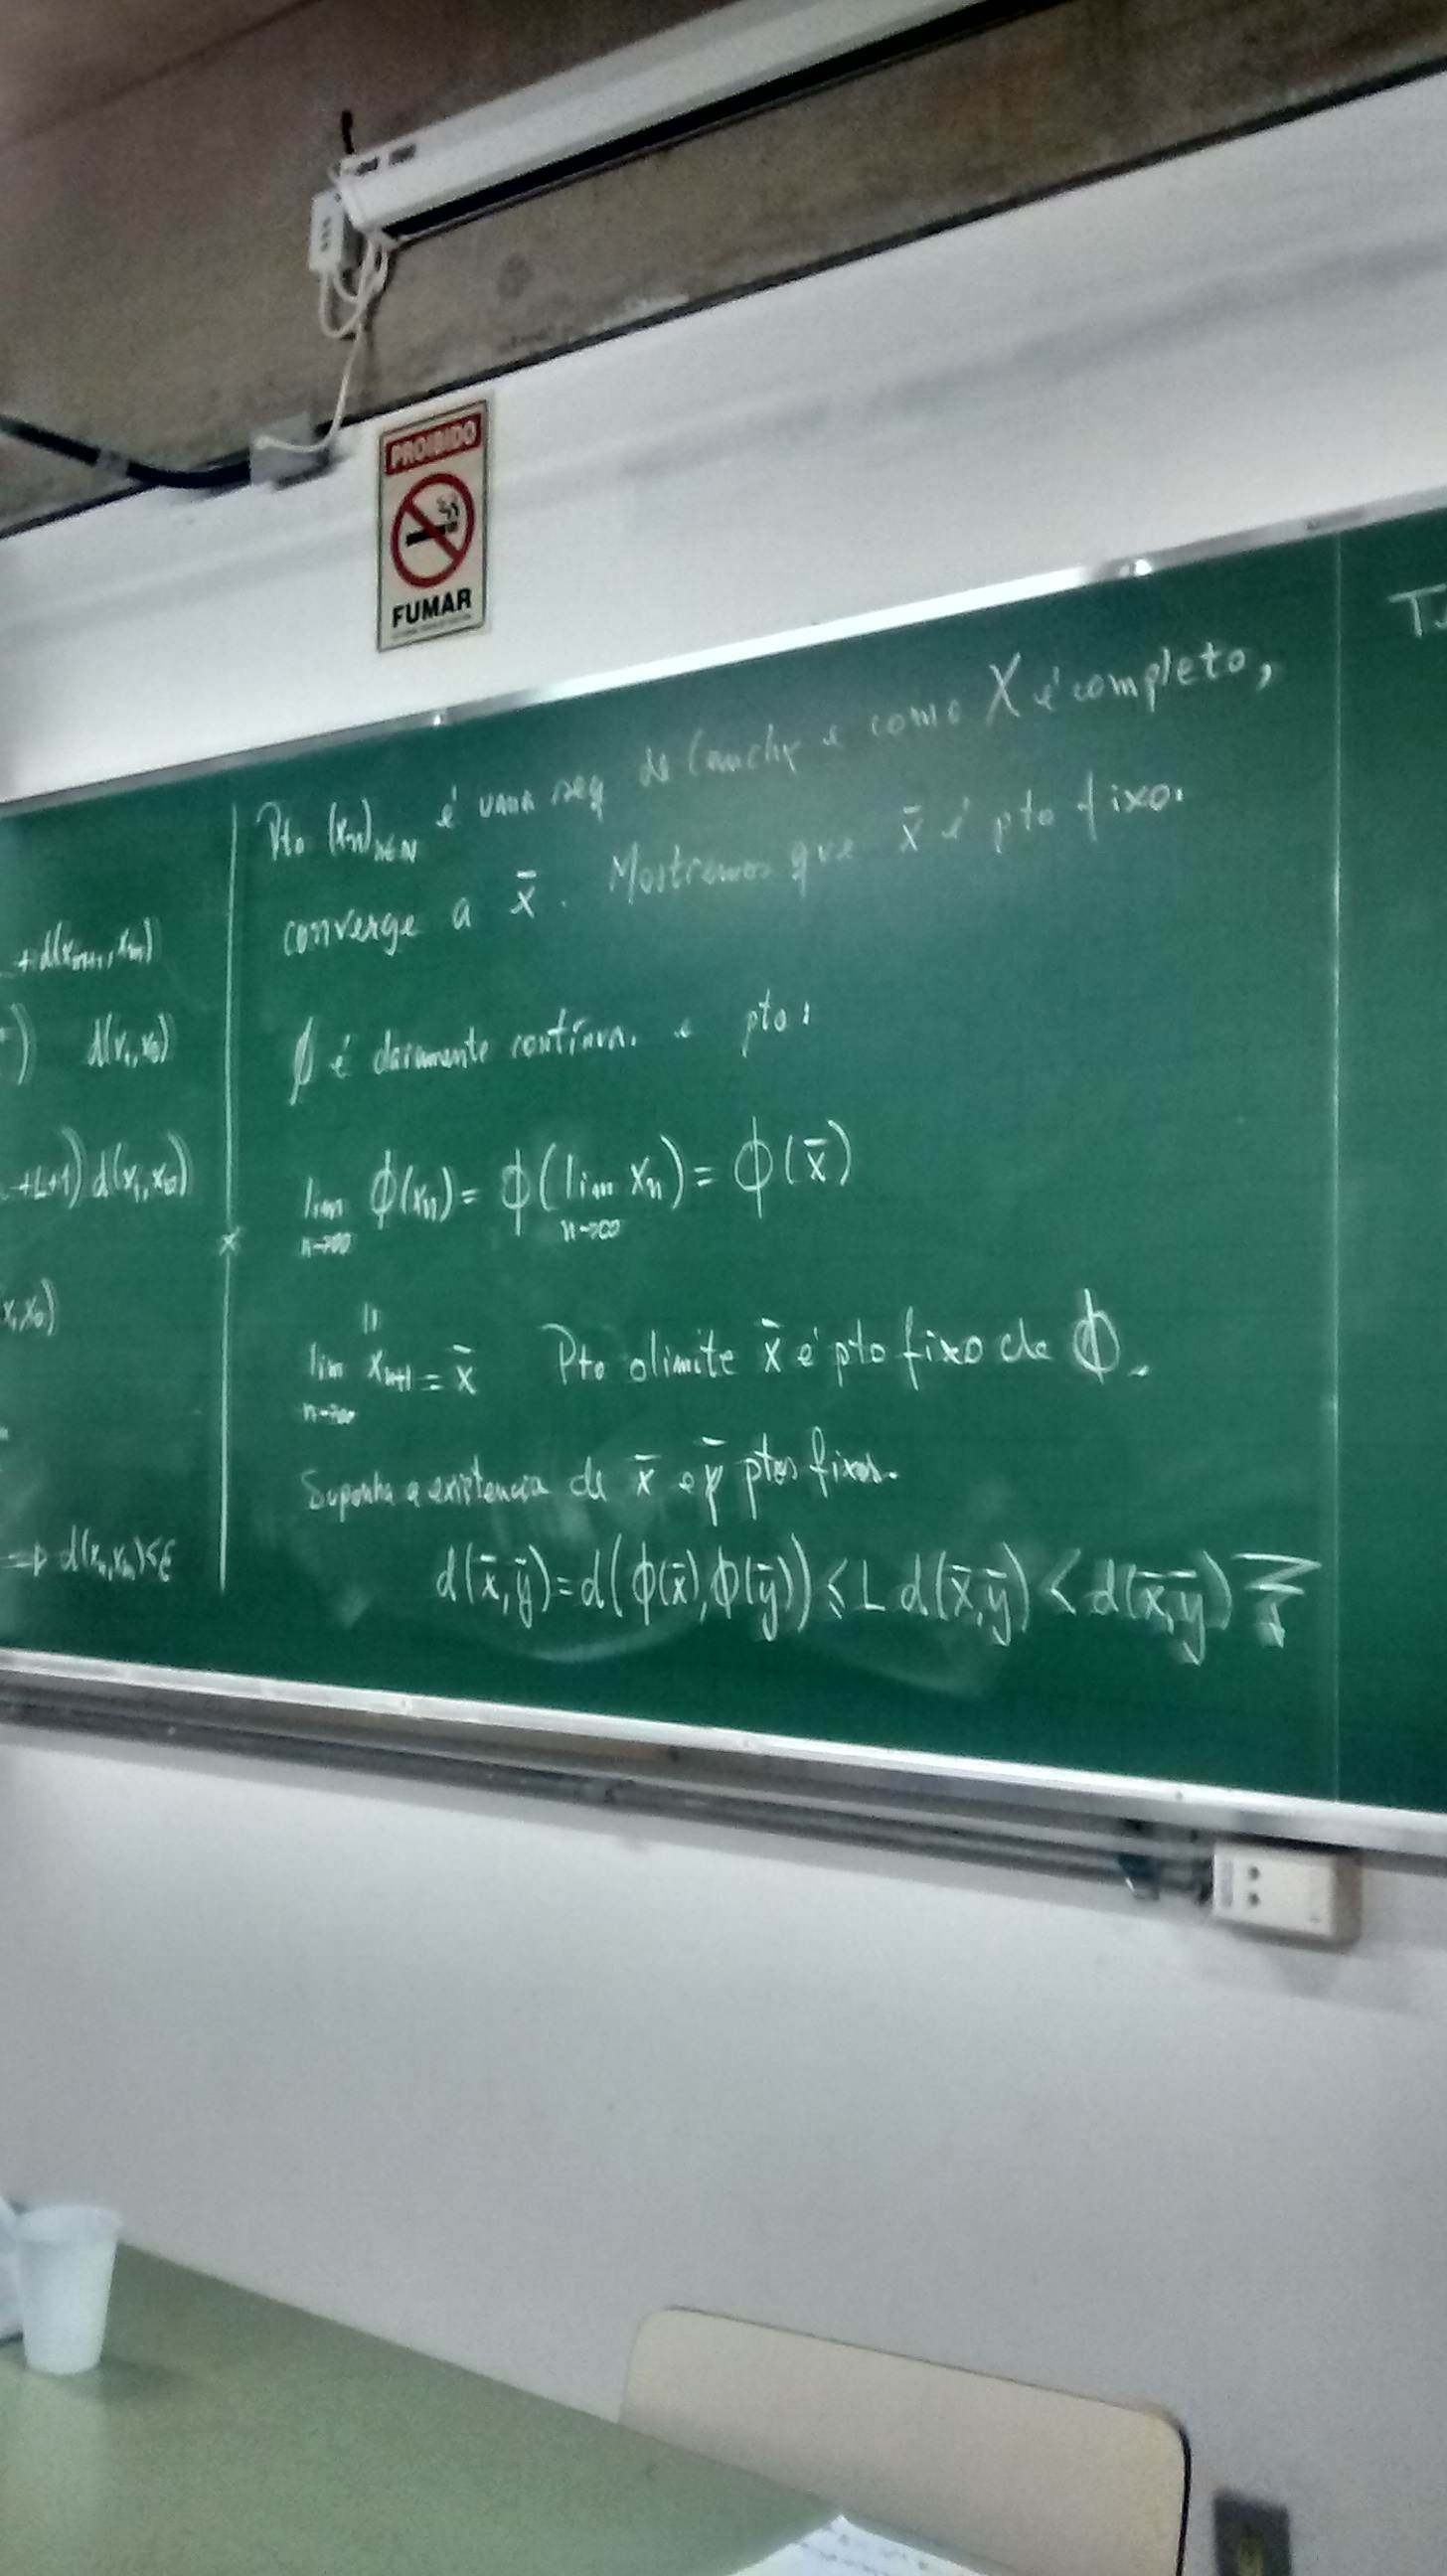 PROIBIDO
FUMAR
+d(xₘ₊₁,xₘ)
) d(x₁,x₀)
+L+1) d(x₁,x₀)
x₁,x₀)
=> d(xₙ,xₘ)<ε
Pto (xₙ)ₙ∈N é uma seq de Cauchy e como X é completo,
converge a x̄. Mostremos que x̄ é pto fixo.
ϕ é claramente contínua. e pto:
lim ϕ(xₙ) = ϕ(lim xₙ) = ϕ(x̄)
n→∞ n→∞
||
lim xₙ₊₁ = x̄ Pto o limite x̄ é pto fixo de ϕ.
n→∞
Suponha a existencia de x̄ e ȳ ptos fixos.
d(x̄,ȳ)=d(ϕ(x̄),ϕ(ȳ)) ≤ L d(x̄,ȳ) < d(x̄,ȳ)